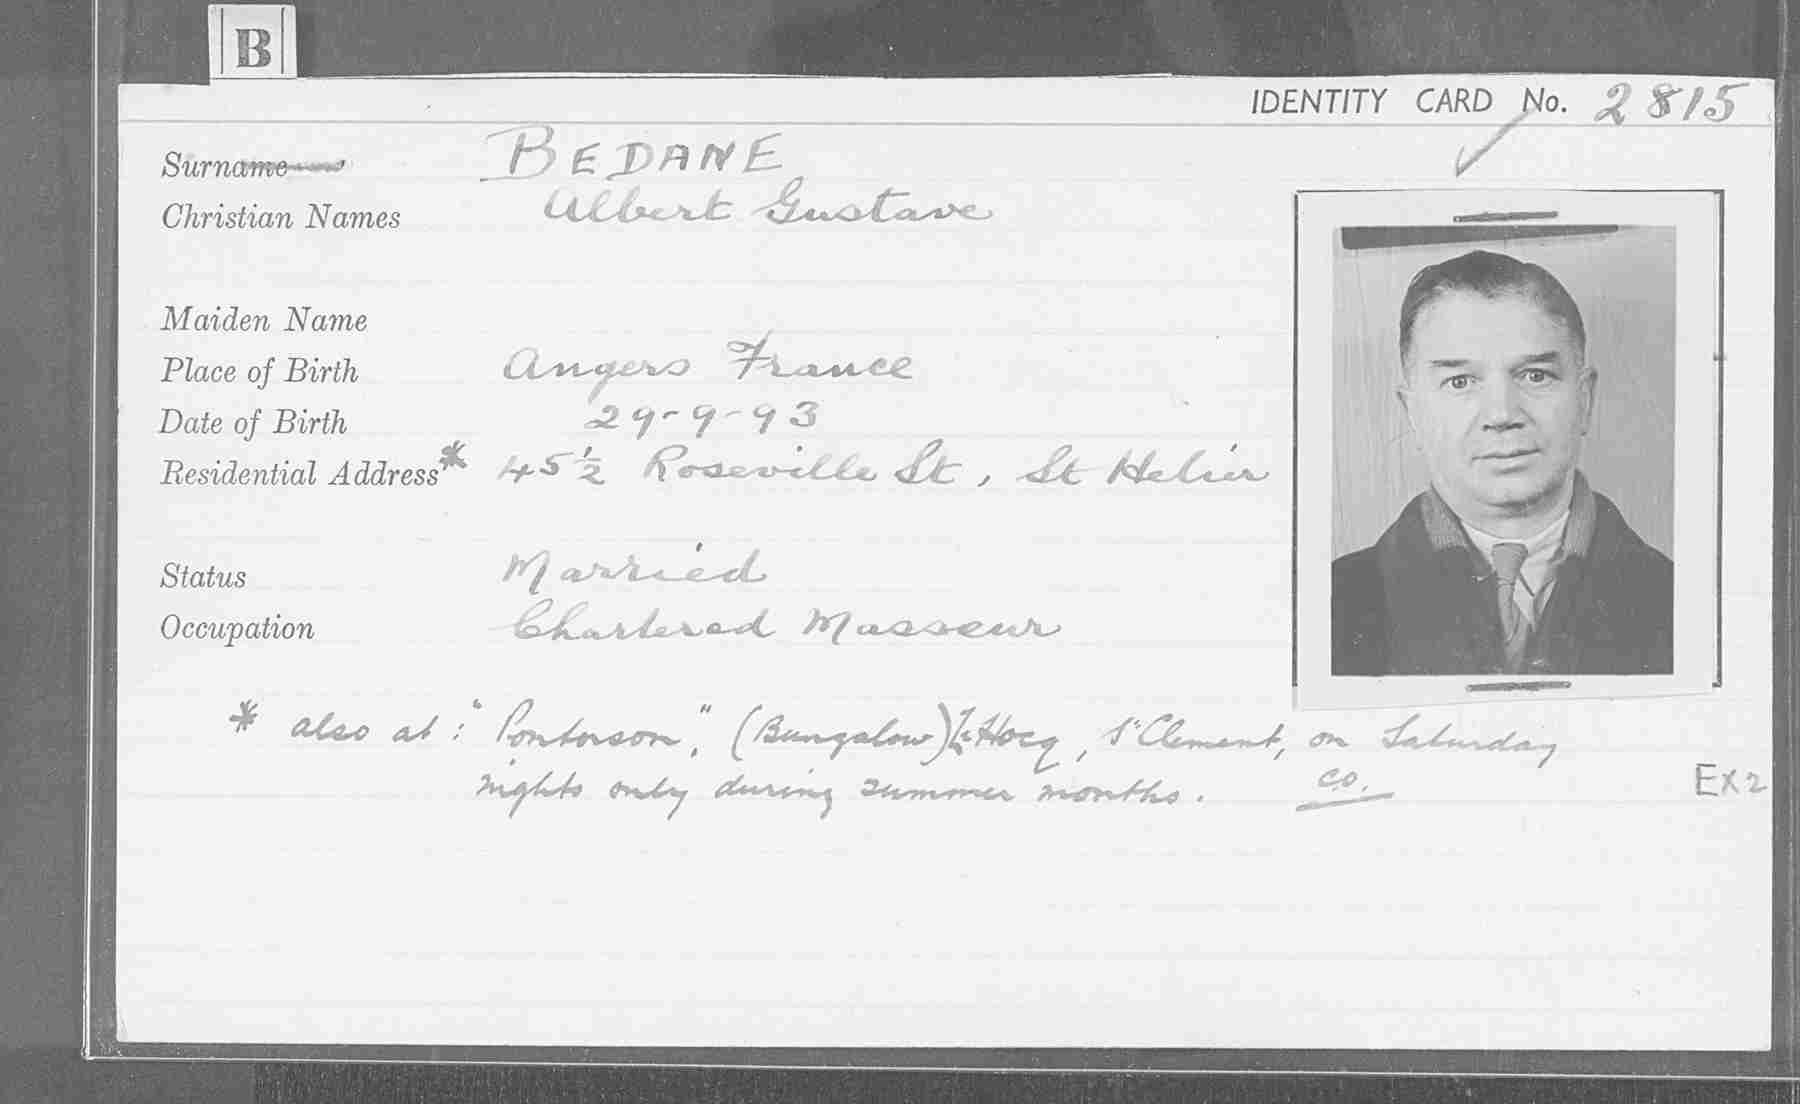 B
IDENTITY CARD No. 2815
Surname BEDANE
Christian Names Albert Gustave
Maiden Name
Place of Birth Angers France
Date of Birth 29-9-93
Residential Address* 45½ Roseville St, St Helier
Status Married
Occupation Chartered Masseur
* also at: "Pontorson", (Bungalow) Le Hocq, St Clement, on Saturday
nights only during summer months. C.O.
EX2